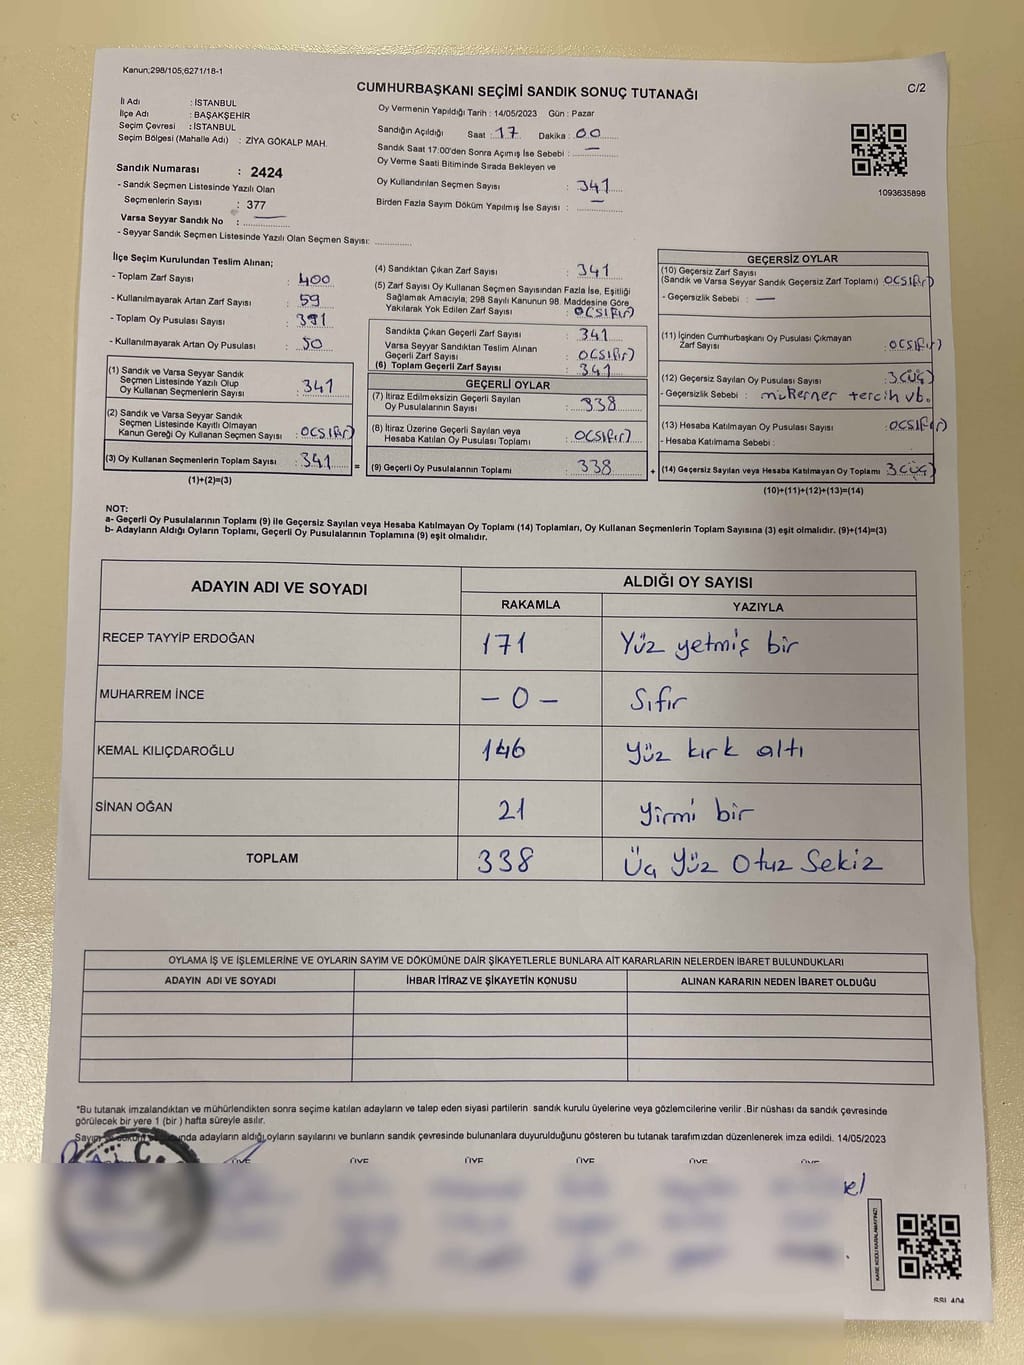 Kanun;298/105;6271/18-1
C/2
CUMHURBAŞKANI SEÇİMİ SANDIK SONUÇ TUTANAĞI
İl Adı : İSTANBUL
İlçe Adı : BAŞAKŞEHİR
Seçim Çevresi : İSTANBUL
Seçim Bölgesi (Mahalle Adı) : ZİYA GÖKALP MAH.
Sandık Numarası : 2424
- Sandık Seçmen Listesinde Yazılı Olan
Seçmenlerin Sayısı : 377
Varsa Seyyar Sandık No : —
- Seyyar Sandık Seçmen Listesinde Yazılı Olan Seçmen Sayısı: ............
Oy Vermenin Yapıldığı Tarih : 14/05/2023 Gün : Pazar
Sandığın Açıldığı Saat : 17 Dakika : 00
Sandık Saat 17:00'den Sonra Açımış İse Sebebi : —
Oy Verme Saati Bitiminde Sırada Bekleyen ve
Oy Kullandırılan Seçmen Sayısı : 341
Birden Fazla Sayım Döküm Yapılmış İse Sayısı : —
1093635898
İlçe Seçim Kurulundan Teslim Alınan;
- Toplam Zarf Sayısı : 400
- Kullanılmayarak Artan Zarf Sayısı : 59
- Toplam Oy Pusulası Sayısı : 391
- Kullanılmayarak Artan Oy Pusulası : 50
(1) Sandık ve Varsa Seyyar Sandık
Seçmen Listesinde Yazılı Olup
Oy Kullanan Seçmenlerin Sayısı : 341
(2) Sandık ve Varsa Seyyar Sandık
Seçmen Listesinde Kayıtlı Olmayan
Kanun Gereği Oy Kullanan Seçmen Sayısı : 0(SIfır)
(3) Oy Kullanan Seçmenlerin Toplam Sayısı : 341
(1)+(2)=(3)
(4) Sandıktan Çıkan Zarf Sayısı : 341
(5) Zarf Sayısı Oy Kullanan Seçmen Sayısından Fazla İse, Eşitliği
Sağlamak Amacıyla, 298 Sayılı Kanunun 98. Maddesine Göre
Yakılarak Yok Edilen Zarf Sayısı : 0(SIfır)
Sandıkta Çıkan Geçerli Zarf Sayısı : 341
Varsa Seyyar Sandıktan Teslim Alınan
Geçerli Zarf Sayısı : 0(SIfır)
(6) Toplam Geçerli Zarf Sayısı : 341
GEÇERLİ OYLAR
(7) İtiraz Edilmeksizin Geçerli Sayılan
Oy Pusulalarının Sayısı : 338
(8) İtiraz Üzerine Geçerli Sayılan veya
Hesaba Katılan Oy Pusulası Toplamı : 0(SIfır)
= (9) Geçerli Oy Pusulalarının Toplamı : 338 +
GEÇERSİZ OYLAR
(10) Geçersiz Zarf Sayısı
(Sandık ve Varsa Seyyar Sandık Geçersiz Zarf Toplamı) : 0(SIfır)
- Geçersizlik Sebebi : —
(11) İçinden Cumhurbaşkanı Oy Pusulası Çıkmayan
Zarf Sayısı : 0(SIfır)
(12) Geçersiz Sayılan Oy Pusulası Sayısı : 3(üç)
- Geçersizlik Sebebi : mükerrer tercih vb.
(13) Hesaba Katılmayan Oy Pusulası Sayısı : 0(SIfır)
- Hesaba Katılmama Sebebi :
(14) Geçersiz Sayılan veya Hesaba Katılmayan Oy Toplamı : 3(üç)
(10)+(11)+(12)+(13)=(14)
NOT:
a- Geçerli Oy Pusulalarının Toplamı (9) ile Geçersiz Sayılan veya Hesaba Katılmayan Oy Toplamı (14) Toplamları, Oy Kullanan Seçmenlerin Toplam Sayısına (3) eşit olmalıdır. (9)+(14)=(3)
b- Adayların Aldığı Oyların Toplamı, Geçerli Oy Pusulalarının Toplamına (9) eşit olmalıdır.
ADAYIN ADI VE SOYADI ALDIĞI OY SAYISI
RAKAMLA YAZIYLA
RECEP TAYYİP ERDOĞAN 171 Yüz yetmiş bir
MUHARREM İNCE — 0 — Sıfır
KEMAL KILIÇDAROĞLU 146 yüz kırk altı
SİNAN OĞAN 21 yirmi bir
TOPLAM 338 Üç Yüz Otuz Sekiz
OYLAMA İŞ VE İŞLEMLERİNE VE OYLARIN SAYIM VE DÖKÜMÜNE DAİR ŞİKAYETLERLE BUNLARA AİT KARARLARIN NELERDEN İBARET BULUNDUKLARI
ADAYIN ADI VE SOYADI İHBAR İTİRAZ VE ŞİKAYETİN KONUSU ALINAN KARARIN NEDEN İBARET OLDUĞU
*Bu tutanak imzalandıktan ve mühürlendikten sonra seçime katılan adayların ve talep eden siyasi partilerin sandık kurulu üyelerine veya gözlemcilerine verilir .Bir nüshası da sandık çevresinde
görülecek bir yere 1 (bir ) hafta süreyle asılır.
Sayım adayların aldığı,oyların sayılarını ve bunların sandık çevresinde bulunanlara duyurulduğunu gösteren bu tutanak tarafımızdan düzenlenerek imza edildi. 14/05/2023
ÜYE ÜYE ÜYE ÜYE ÜYE ÜYE
KARE KODU KARALAMAYINIZ!